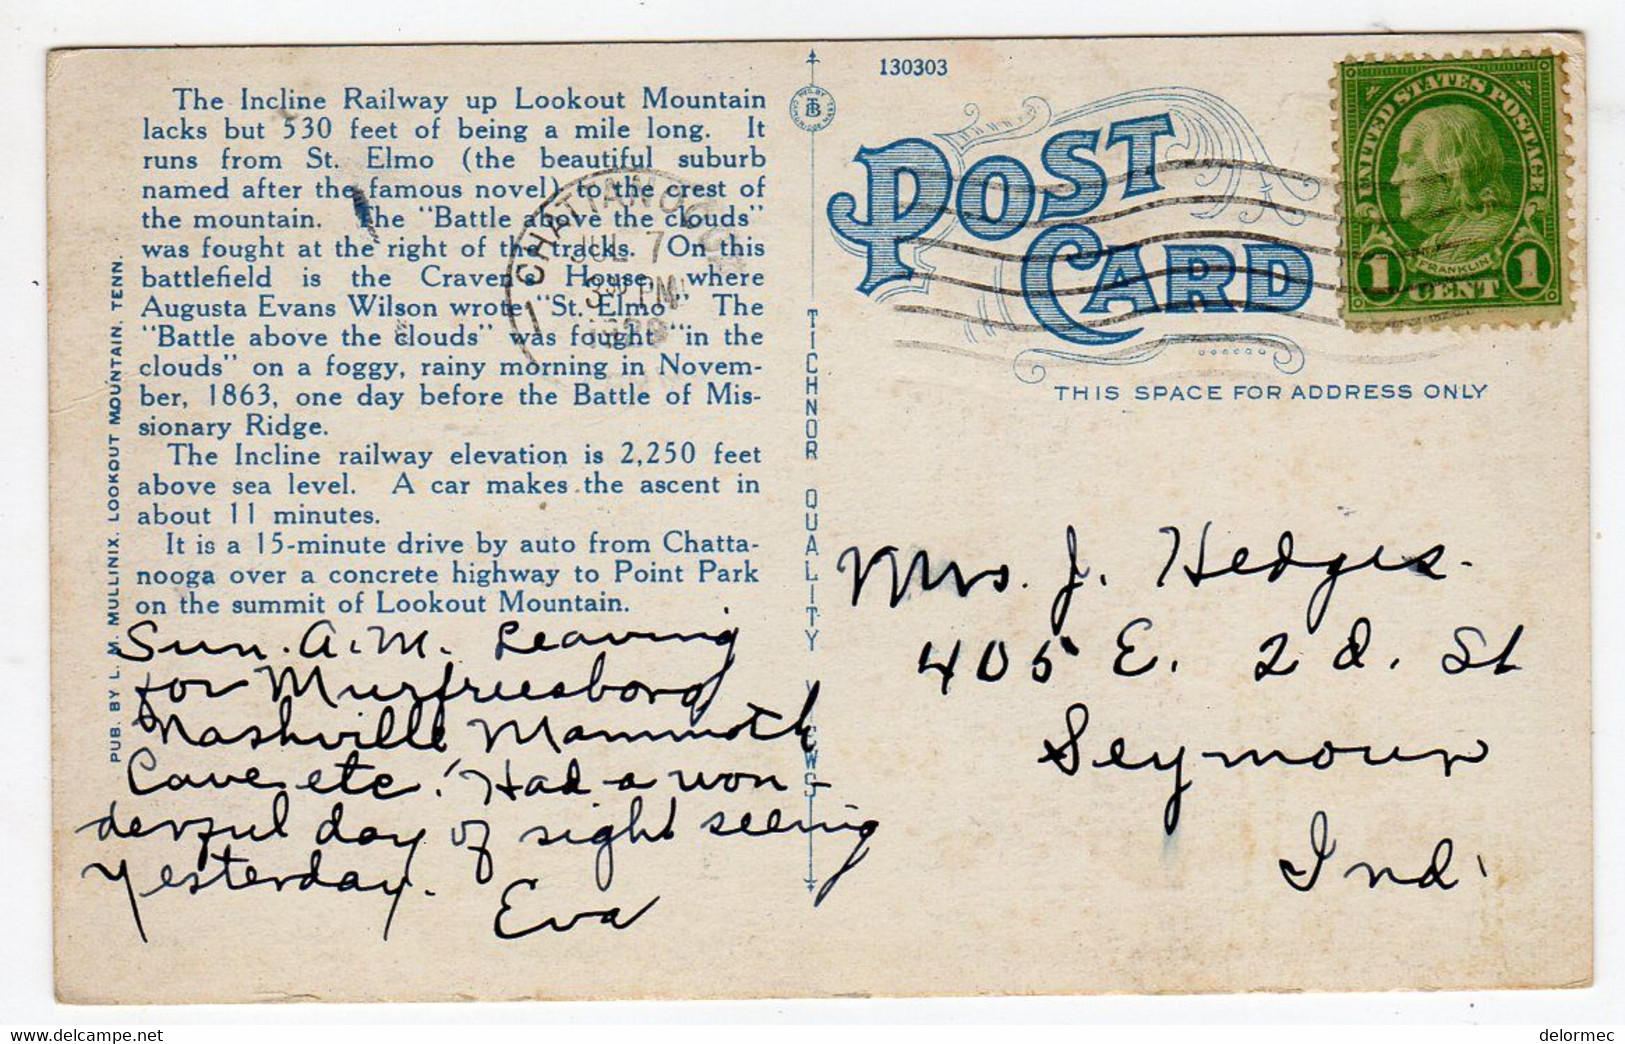 The Incline Railway up Lookout Mountain
lacks but 530 feet of being a mile long. It
runs from St. Elmo (the beautiful suburb
named after the famous novel) to the crest of
the mountain. The "Battle above the clouds"
was fought at the right of the tracks. On this
battlefield is the Craven's House where
Augusta Evans Wilson wrote "St. Elmo" The
"Battle above the clouds" was fought "in the
clouds" on a foggy, rainy morning in Novem-
ber, 1863, one day before the Battle of Mis-
sionary Ridge.
The Incline railway elevation is 2,250 feet
above sea level. A car makes the ascent in
about 11 minutes.
It is a 15-minute drive by auto from Chatta-
nooga over a concrete highway to Point Park
on the summit of Lookout Mountain.
PUB. BY L. M. MULLINIX. LOOKOUT MOUNTAIN. TENN.
Sun. A.M. Leaving
for Murfreesboro
Nashville Mammoth
Cave etc. Had a won-
derful day of sight seeing
yesterday.
Eva
CHATTANOOGA
JUL 7
3 30 PM
TICHNOR QUALITY VIEWS
130303
POST
CARD
THIS SPACE FOR ADDRESS ONLY
UNITED STATES POSTAGE
FRANKLIN
1 CENT 1
Mrs. J. Hedges.
405 E. 2d. St
Seymour
Ind.
delormec